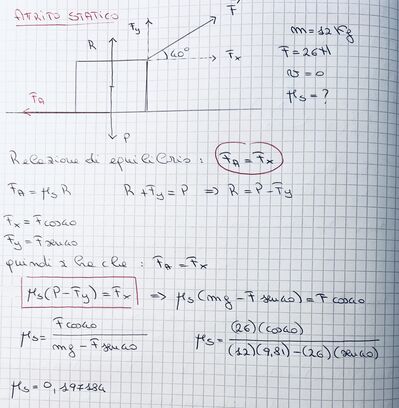 ATRITO STATICO
R
Fy
F
40°
Fx
FA
P
m = 12 Kg
F = 26N
v = 0
μs = ?
Relazione di equilibrio : FA = Fx
FA = μs R    R + Fy = P ⇒ R = P - Fy
Fx = F cos40
Fy = F sen40
quindi è che : FA = Fx
μs (P - Fy) = Fx ⇒ μs (mg - F sen40) = F cos40
μs = F cos40 / mg - F sen40    μs = (26)(cos40) / (12)(9,81) - (26)(sen40)
μs = 0,197184